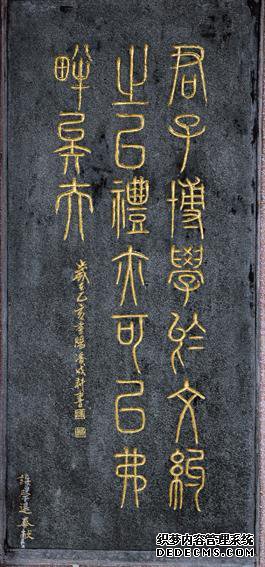 君子博學於文約
之以禮亦可以弗
畔矣夫
歲在乙亥
书
织梦内容管理系统
DEDECMS.COM